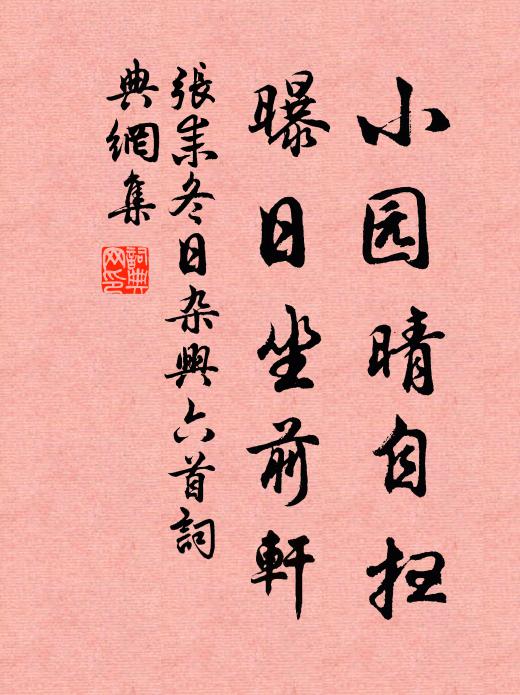 小园晴自扫
曝日坐前軒
張耒冬日杂興六首詞
典網集
詞典
网印